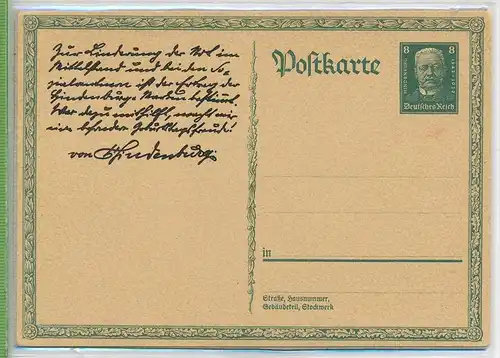 Zur Linderung der Not im
Mittelstand und bei den So-
zialrentnern ist der Ertrag der
Hindenburg-Marken bestimmt.
Wer dazu mithilft, macht mir
eine besondere Geburtstagsfreude!
von Hindenburg.
Postkarte
8 8
Deutsches Reich
in
Straße, Hausnummer,
Gebäudeteil, Stockwerk